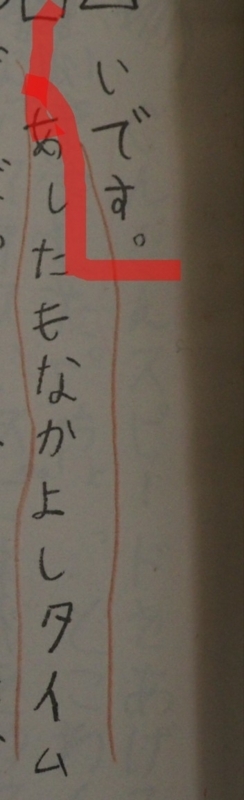 いです。
あしたもなかよしタイム